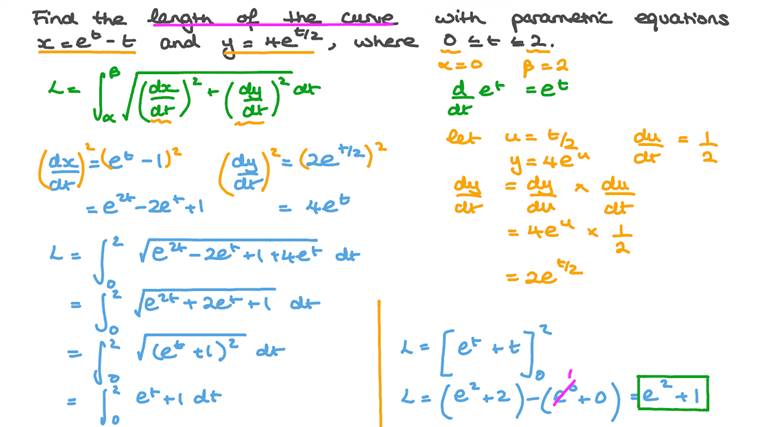 Find the length of the curve with parametric equations
x = e^t - t and y = 4e^(t/2), where 0 ≤ t ≤ 2.
α = 0 β = 2
L = ∫_α^β √((dx/dt)² + (dy/dt)²) dt
d/dt e^t = e^t
let u = t/2 du/dt = 1/2
y = 4e^u
(dx/dt)² = (e^t - 1)² (dy/dt)² = (2e^(t/2))²
= e^(2t) - 2e^t + 1 = 4e^t
dy/dt = dy/du × du/dt
= 4e^u × 1/2
= 2e^(t/2)
L = ∫_0^2 √(e^(2t) - 2e^t + 1 + 4e^t) dt
= ∫_0^2 √(e^(2t) + 2e^t + 1) dt
= ∫_0^2 √((e^t + 1)²) dt
= ∫_0^2 e^t + 1 dt
L = [e^t + t]_0^2
1
L = (e² + 2) - (e^0 + 0) = e² + 1